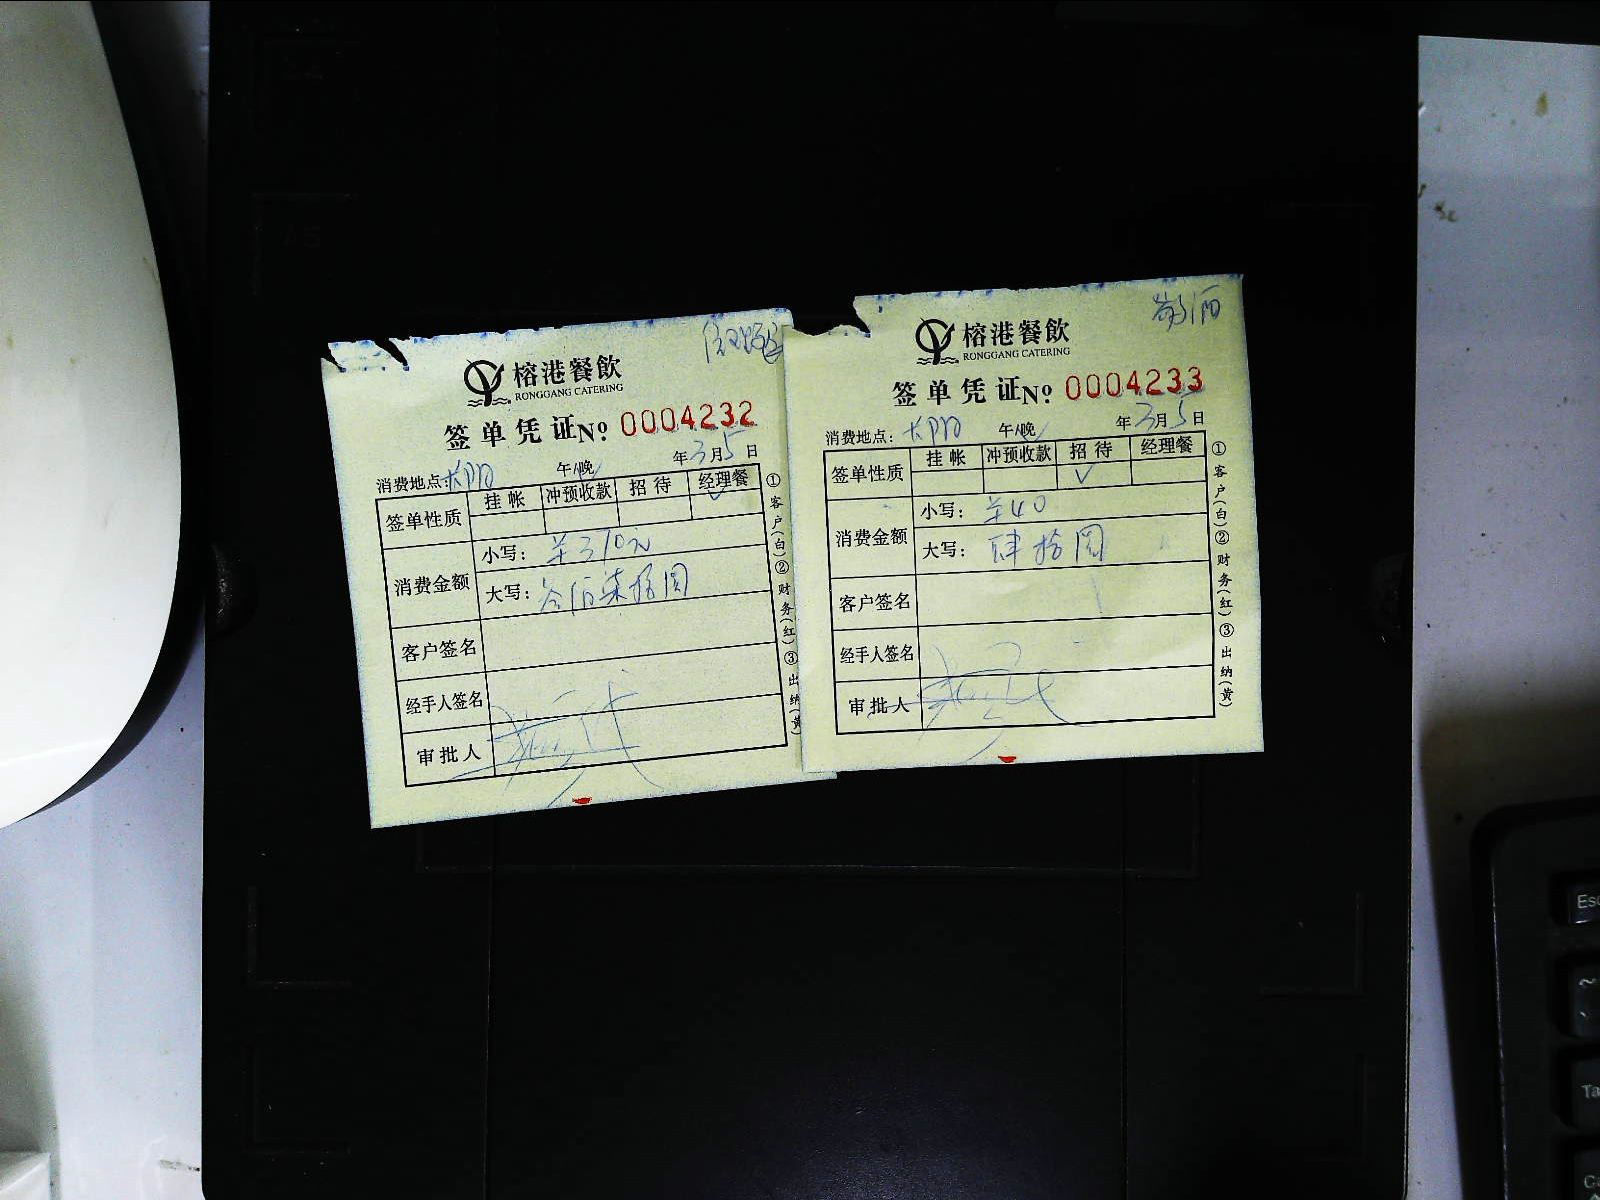 榕港餐飲
RONGGANG CATERING
签单凭证 No 0004232
年3月5日
消费地点: 午/晚
签单性质 挂帐 冲预收款 招待 经理餐
消费金额 小写: ¥370元
大写: 叁佰柒拾圆
客户签名
经手人签名
审批人
①客户(白)②财务(红)③出纳(黄)
敬酒
榕港餐飲
RONGGANG CATERING
签单凭证 No 0004233
年3月5日
消费地点: 午/晚
签单性质 挂帐 冲预收款 招待 经理餐
消费金额 小写: ¥40
大写: 肆拾圆
客户签名
经手人签名
审批人
①客户(白)②财务(红)③出纳(黄)
Esc